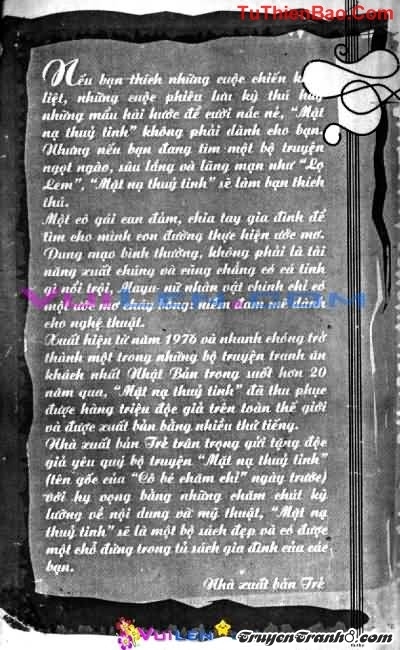 TuThienBao.Com
Nếu bạn thích những cuộc chiến
liệt, những cuộc phiêu lưu kỳ thú hay
những mẩu hài hước để cười nắc nẻ, “Mặt
nạ thuỷ tinh” không phải dành cho bạn.
Nhưng nếu bạn đang tìm một bộ truyện
ngọt ngào, sâu lắng và lãng mạn như “Lọ
Lem”, “Mặt nạ thuỷ tinh” sẽ làm bạn thích
thú.
Một cô gái can đảm, chia tay gia đình để
tìm cho mình con đường thực hiện ước mơ.
Dung mạo bình thường, không phải là tài
năng xuất chúng và cũng chẳng có cá tính
gì nổi trội, Maya- nữ nhân vật chính chỉ có
một ước mơ cháy bỏng: niềm đam mê dành
cho nghệ thuật.
Xuất hiện từ năm 1976 và nhanh chóng trở
thành một trong những bộ truyện tranh ăn
khách nhất Nhật Bản trong suốt hơn 20
năm qua, “Mặt nạ thuỷ tinh” đã thu phục
được hàng triệu độc giả trên toàn thế giới
và được xuất bản bằng nhiều thứ tiếng.
Nhà xuất bản Trẻ trân trọng gửi tặng độc
giả yêu quý bộ truyện “Mặt nạ thuỷ tinh”
(tên gốc của “Cô bé chăm chỉ” ngày trước)
với hy vọng bằng những chăm chút kỹ
lưỡng về nội dung và mỹ thuật, “Mặt nạ
thuỷ tinh” sẽ là một bộ sách đẹp và có được
một chỗ đứng trong tủ sách gia đình của các
bạn.
Nhà xuất bản Trẻ
TruyenTranh8.com